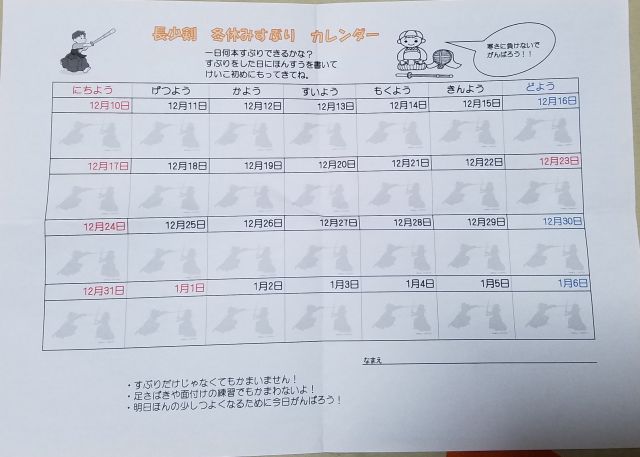 長少剣　冬休みすぶり　カレンダー
一日何本すぶりできるかな？
すぶりをした日にほんすうを書いて
けいこ初めにもってきてね。
寒さに負けないで
がんばろう！！
にちよう げつよう かよう すいよう もくよう きんよう どよう
12月10日 12月11日 12月12日 12月13日 12月14日 12月15日 12月16日
12月17日 12月18日 12月19日 12月20日 12月21日 12月22日 12月23日
12月24日 12月25日 12月26日 12月27日 12月28日 12月29日 12月30日
12月31日 1月1日 1月2日 1月3日 1月4日 1月5日 1月6日
なまえ
・すぶりだけじゃなくてもかまいません！
・足さばきや面付けの練習でもかまわないよ！
・明日ほんの少しつよくなるために今日がんばろう！